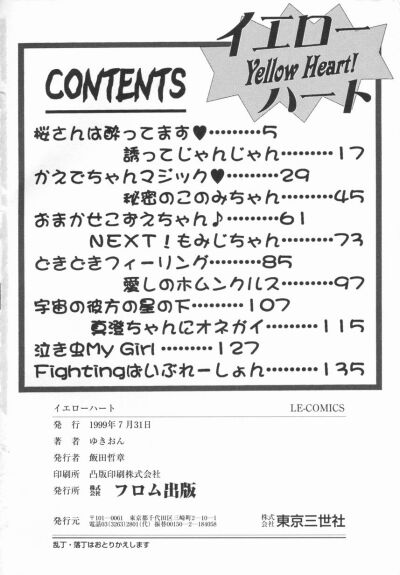 イエロー
Yellow Heart!
ハート
CONTENTS
桜さんは酔ってます♥………5
誘ってじゃんじゃん………17
かえでちゃんマジック♥………29
秘密のこのみちゃん………45
おまかせこずえちゃん♪………61
NEXT！もみじちゃん………73
どきどきフィーリング………85
愛しのホムンクルス………97
宇宙の彼方の星の下………107
真澄ちゃんにオネガイ………115
泣き虫My Girl ………127
Fightingばいぶれーしょん………135
イエローハート LE-COMICS
発 行 1999年7月31日
著 者 ゆきおん
発行者 飯田哲章
印刷所 凸版印刷株式会社
発行所 株式会社 フロム出版
発行元 〒101-0061 東京都千代田区三崎町2-10-1 株式会社 東京三世社
電話03(3263)2801(代) 振替00150-2-184058
乱丁・落丁はおとりかえします